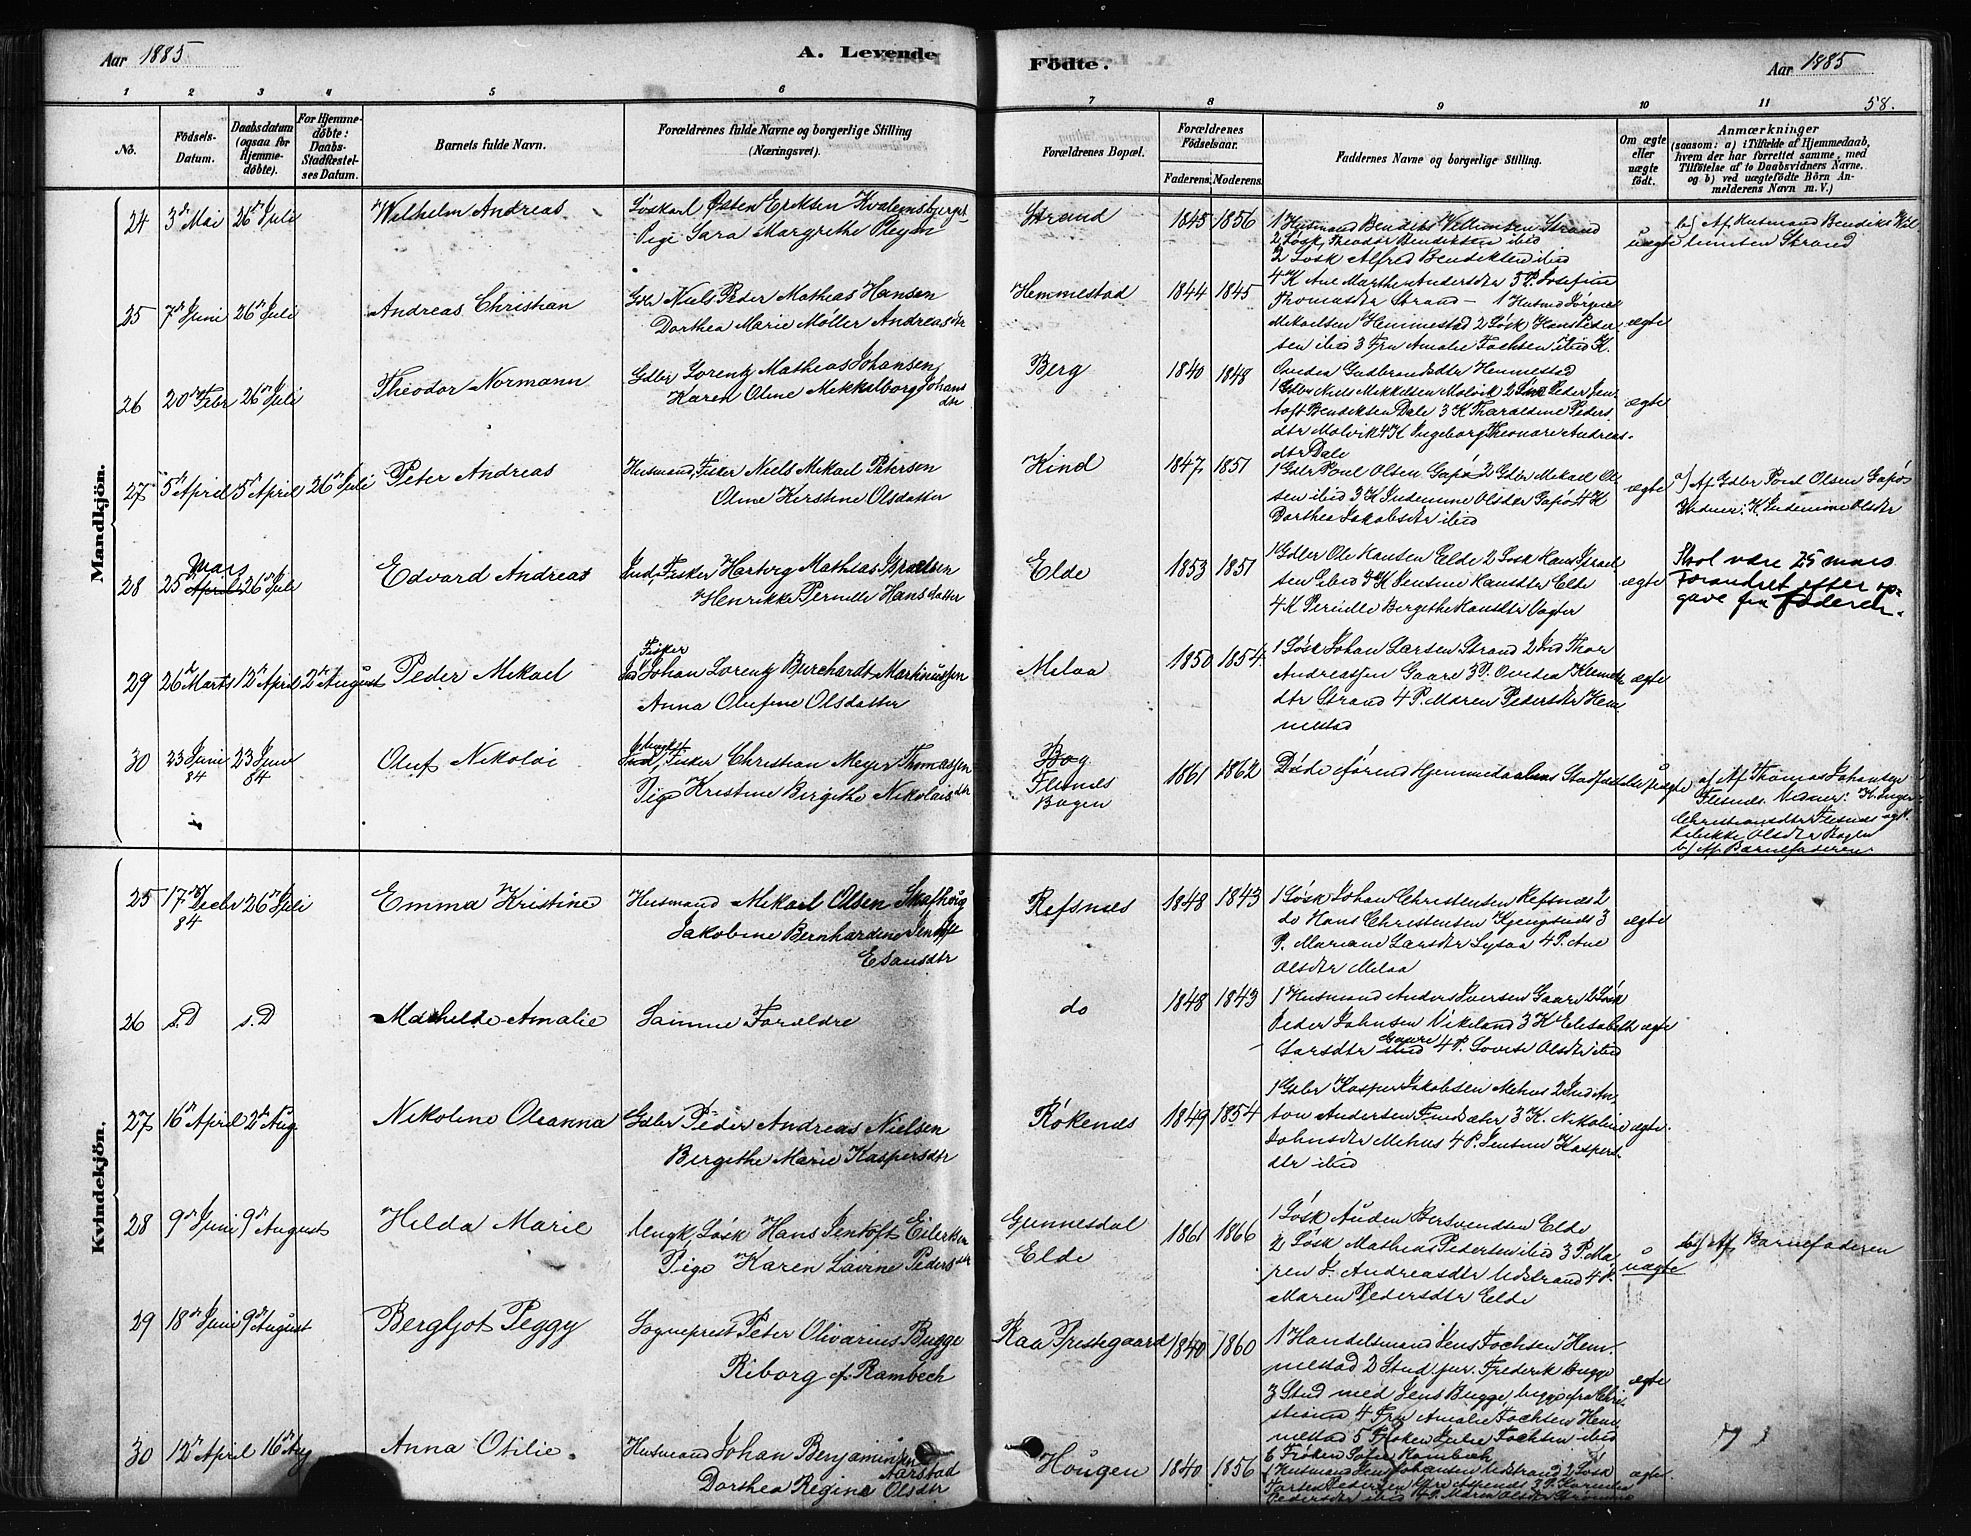 Aar 1885
A. Levende
Födte.
Aar 1885
1 2 3 4 5 6 7 8 9 10 11 58.
No.
Födsels-Datum.
Daabsdatum (ogsaa for Hjemme-döbte).
For Hjemme-döbte: Daabs-Stadfæstel-ses Datum.
Barnets fulde Navn.
Forældrenes fulde Navne og borgerlige Stilling (Næringsvei).
Forældrenes Bopæl.
Forældrenes Födselsaar.
Faderens. Moderens.
Faddernes Navne og borgerlige Stilling.
Om ægte eller uægte födt.
Anmærkninger
(saasom: a) i Tilfælde af Hjemmedaab, hvem der har forrettet samme, med Tilföielse af to Daabsvidners Navne, og b) ved uægtefödte Börn Anmelderens Navn m. V.)
Mandkjön.
24 3die Mai 26de Juli Wilhelm Andreas
Löskarl Østen Eriksen Kvalemsbjerget
Pige Sara Margrethe
Strand 1845 1856
1 Husmand Bendiks Villumsen Strand
2 Løsk. Theodor Bendiksen ibid
Løsk Alfred Bendiksen ibid
4 K Ane Marthe Andersdtr 5 P. Josefine
Thomasdtr Strand
uægte
b) Af Husmand Bendiks Vil-
lumsen Strand
25 7de Juni 26de Juli Andreas Christian
Gdbr Niels Peder Mathias Hansen
Dorthea Marie Møller Andreasdtr
Hemmestad 1844 1845
1 Husmd Jørgen
Mekaelsen Hemmestad 2 Løsk Hans Peder
sen ibid 3 Fru Amalie Fochsen ibid K.
Ovedia Gudbrandsdtr Hemmestad
ægte
26 20de Febr 26de Juli Theodor Normann
Gdbr Lorentz Mathias Johansen
Karen Oline Mekkelborg Johans
dtr
Berg 1840 1848
1 Gdbr Niels Mekkelsen Molvik 2 Peder Jen-
toft Bendiksen Dale 3 K Tharaldine Peders
dtr Molvik 4 K Ingeborg Andreas-
dtr Dale
ægte
27 5te April 5te April 26de Juli Peter Andreas
Husmand, Fisker Niels Mikael Petersen
Oline Kerstine Olsdatter
Kind 1847 1851
1 Gdbr Poul Olsen Gapø 2 Gdbr Mekael Ol-
sen ibid 3 K Olsdtr Gapø 4 K
Dorthea Jakobsdtr ibid
ægte
a) Af Gdbr Poul Olsen Gapø
Vidner: K. Olsdtr
28 25de Mars April 26de Juli Edvard Andreas
Ind. Fisker Hartvig Mathias Israelsen
Henrikke Pernille Hansdatter
Elde 1853 1851
1 Gdbr Ole Hansen Elde 2 Løsk Hans Israel
sen ibid 3 K Jensine Hansdtr Elde
4 K Pernille Bergithe Hansdtr
ægte
Skal være 25 mars
Forandret efter op-
gave fra faderen.
29 26de Marts 12te April 2den August Peder Mikael
Fisker
Ind Johan Lorentz Burchardt Martinussen
Anna Olufine Olsdatter
Melaa 1850 1854
1 Løsk Johan Larsen Strand 2 Ind Thor
Andreassen Gaare 3 P. Ovedia Klemets
dtr Strand 4 P. Maren Pedersdtr Hem-
mestad
ægte
30 23 Juni 84 23 Juni 84 Oluf Nikolai
Ind, Fisker Christian Meyer Thomassen
Pige Kristine Bergithe Nikolaisdtr
Bog
Flesnes
Bogen
1861 1862
Døde førend Hjemmedaabens Stadfæstelse
uægte
a) Af Thomas Johansen
Flesnes. Vidner: K. Inger
Christiansdtr Flesnes og P.
Olsdtr Bogen
b) Af Barnefaderen
Kvindekjön.
25 17de Decbr 84 26de Juli Emma Kristine
Husmand Mekael Olsen Skafhoug
Jakobine Bernhardine Jentoft
Esausdtr
Refsnes 1848 1843
1 Løsk Johan Christensen Refsnes 2
do Hans Christensen Kjengsnes 3
P. Mariane Larsdtr Lysaa 4 P. Ane
Olsdtr Melaa
ægte
26 s.D s.D Mathilde Amalie
Samme Forældre
do 1848 1843
1 Husmand Anders Iversen Gaare 2 Løsk
Peder Johnsen Vikeland 3 K Elisabeth
Larsdtr Gaare ibid 4 P. Lovise Olsdtr ibid
ægte
27 16de April 2den Aug. Nikoline Oleanna
Gdbr Peder Andreas Nielsen
Bergithe Marie Kaspersdtr
Røkenes 1849 1854
1 Gdbr Kasper Jakobsen Mehus 2 Ind An-
ton Andersen 3 K. Nikoline
Johnsdtr Mehus 4 P. Jensine Kaspers-
dtr ibid
ægte
28 9de Juni 9de August Hilda Marie
Ungk, Løsk Hans Jentoft Eilertsen
Pige Karen Lavine Pedersdtr
Gunnesdal
Elde
1861 1866
1 Løsk Auden Bersvendsen Elde
2 Løsk Mathias Pedersen ibid 3 P. Ma-
ren J. Andreasdtr Udstrand 4 P.
Maren Pedersdtr Elde
uægte
b) Af Barnefaderen
29 18de Juni 9de August Bergljot Peggy
Sogneprest Peter Olivarius Bugge
Riborg f. Rambech
Raa Prestegaard 1840 1860
1 Handelsmand Jens Fochsen Hem-
mestad 2 Stud. jur. Frederik Bugge
3 Stud med Jens Bugge begge fra Chri-
stiania 4 Fru Amalie Fochsen Hem
mestad 5 Frøken Julie Fochsen ibid
6 Frøken Rambech
ægte
30 12te April 16de Aug Anna Otilie
Husmand Johan Benjaminsen
Aarstad
Dorthea Regine Olsdtr
Hougen 1840 1856
1 Husmand Jens Johansen Udstrand 2 Løsk
Pedersdtr ibid 4 P. Maren Olsdtr
ægte